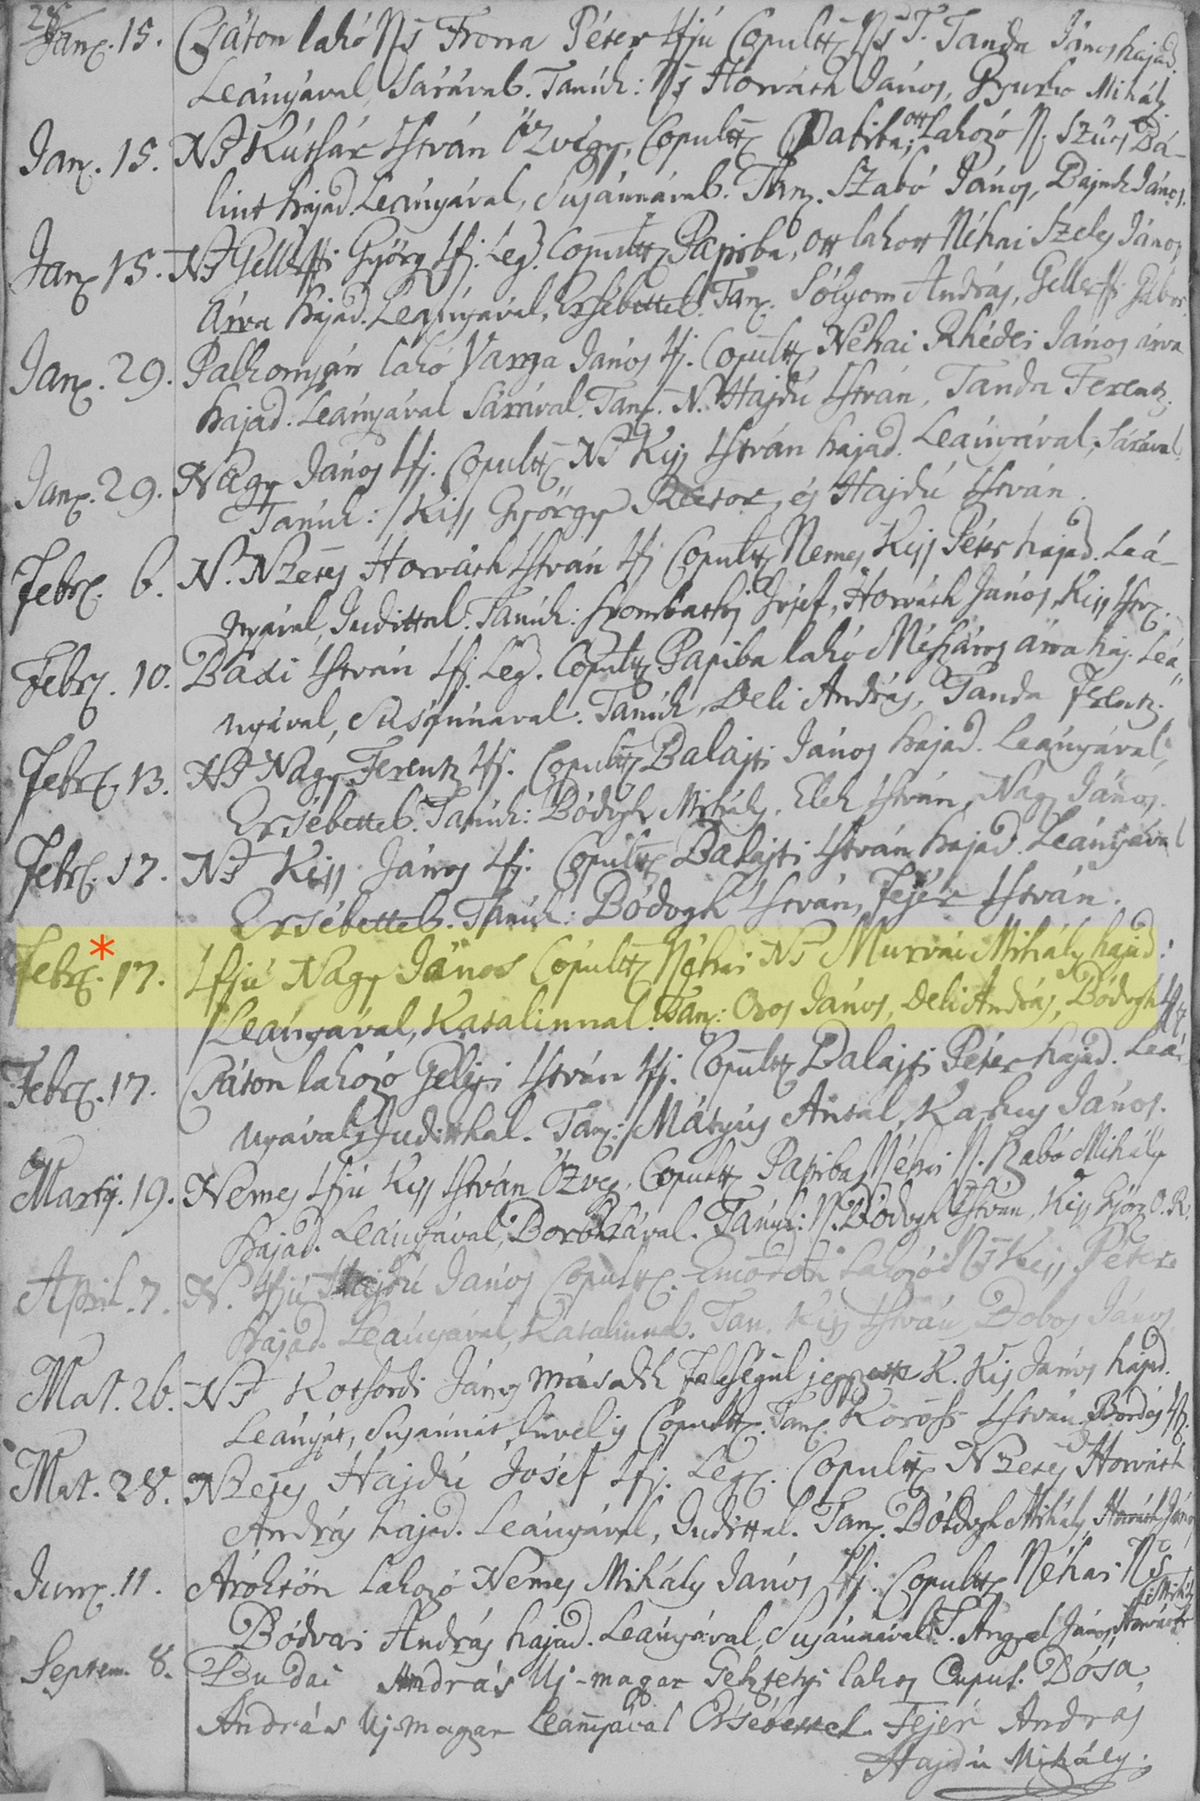 Janr. 15. Csáton lakó Ns Frona Péter Ifjú Copultt. Ns T. Tanda János hajad.
Leányával, Sárával. Tanúk: Ns Horváth János, Mihály
Janr. 15. István Özvegy, Copultt. ott Lakozó N. Szűcs Bá-
lint hajad. Leányával, Susánnával. Tan. Szabó János, János.
Janr. 15. Györg Ifj. Leg. Copultt. Papiba, ott lakott Néhai Szeles János
árva hajad. Leányával, Ersébettel. Tan. Sólyom András, Gellérffi Gábor.
Janr. 29. Palkonyán lakó Varga János Ifj. Copultt. Néhai Rhédei János árva
hajad. Leányával Sárával. Tan. N. Hajdú István, Tanda Ferentz.
Janr. 29. Nagy János Ifj. Copultt. Ns Kiss István hajad. Leányával, Sárával.
Tanúk: Kiss György Rector, és Hajdú István.
Febr. 6. N. Nzetes Horváth István Ifj Copultt. Nemes Kiss Péter hajad. Leá-
nyával, Judittal. Tanúk: Szombathi Jósef, Horváth János, Kiss Istv.
Febr. 10. István Ifj. Leg. Copultt. Papiba lakó Mészáros árva haj. Leá-
nyával, Susánnával. Tanúk, Deli András, Tanda Ferentz.
Febr. 13. Ns Nagy Ferentz Ifj. Copultt. Balajti János hajad. Leányával,
Ersébettel. Tanúk: Bódogh Mihály, Elek István, Nagy János.
Febr. 17. Ns Kiss János Ifj. Copultt. Balajti István hajad. Leányával
Ersébettel. Tanúk: Bódogh István, Fejér István.
Febr. * 17. Ifjú Nagy János Copultt. Néhai Ns Murvai Mihály hajad:
Leányával, Katalinnal. Tan: Oros János, Deli András, Bódogh
Febr. 17. Csáton lakozó István Ifj. Copultt. Balajti Péter hajad. Leá-
nyával, Juditthal. Tan: Mátyus Antal, János.
Martij. 19. Nemes Ifjú Kiss István Özvegy, Copultt. Papiba Néhai N. Szabó Mihály
hajad. Leányával, Borkával. Tanúk: N. Bódogh István, Kiss Györg O. R.
April. 7. N. Ifjú Hajdú János Copultt. Emődön Lakozó Ns Kiss Péter
hajad. Leányával, Katalinnal. Tan. Kiss István, Dobos János.
Maj. 26. Ns Kotsordi János második feleségül K. Kis János hajad.
Leányát, Susánnát, Copultt. Tan. Körösi István, Bordás
Maj. 28. Nzetes Hajdú Jósef Ifj. Leg. Copultt. Nzetes Horváth
András hajad. Leányával, Judittal. Tan. Bódogh Mihály, Horváth János
Junr. 11. Árokton Lakozó Nemes Mihály János Ifj. Copultt. Néhai Ns
Bódvai András hajad. Leányával, Susánnával. T. Angyal János,
Septem. 8. Budai András Uj-magar lakos Copul. Dósa
András Uj-magar Leanyával Ersébettel. Fejér András
Hajdú Mihály.